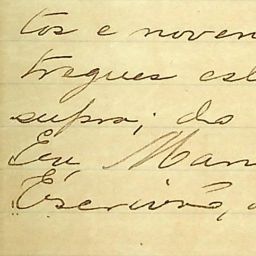 tos e noven
tregues est
supra; do
Eu, Man
Escrivão,